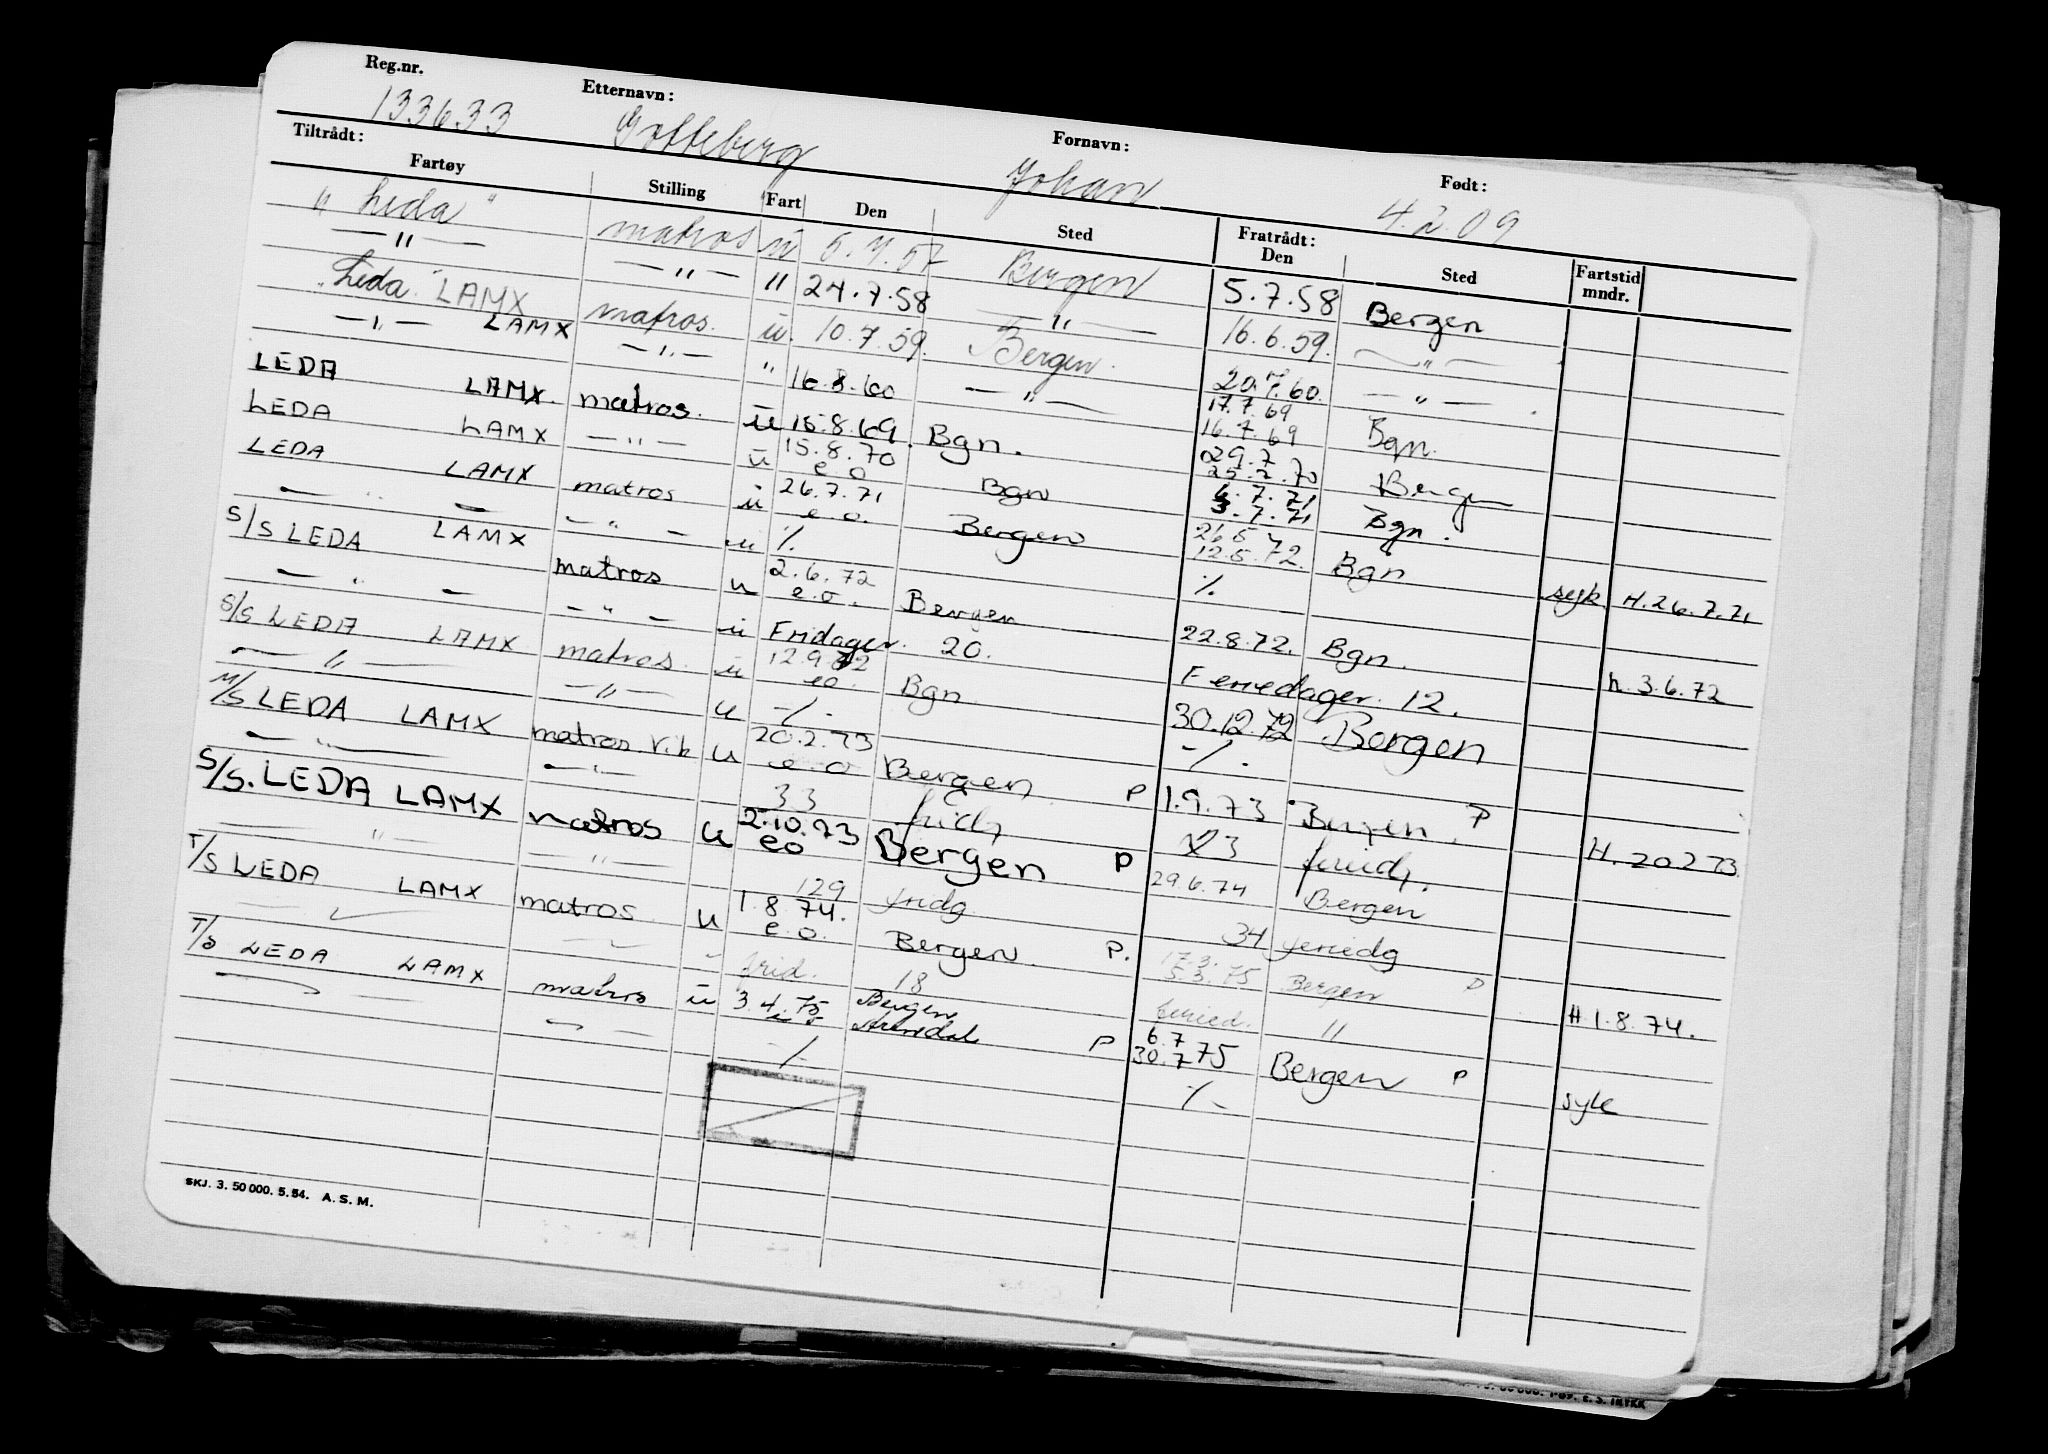 Reg.nr. 133633 Etternavn: Fornavn: Johan Født: 4.2.09
Tiltrådt: Fratrådt:
Fartøy Stilling Fart Den Sted Den Sted Fartstid mndr.
"Leda" matros u Bergen 5.7.58 Bergen
—"— —"— " 24.7.58 —"— 16.6.59. —"—
"Leda" LAMX matros. u. 10.7.59. Bergen. 20.7.60. —"—
—"— LAMX —"— " 16.8.60 —"— 17.7.69 16.7.69 Bgn.
LEDA LAMX. matros. u 15.8.69. Bgn. 29.7 25.7.70 Bergen
LEDA LAMX —"— u 15.8.70 e.o Bgn 6.7.71 3.7.71 Bgn.
LEDA LAMX matros u 26.7.71 e.o. Bergen 26.5 12.5.72. Bgn syk. H.26.7.71
—"— —"— u ٪. ٪.
S/S LEDA LAMX matros u 2.6.72 e.o. Bergen 22.8.72. Bgn. h.3.6.72
—"— —"— u Fridager. 20. Feriedager. 12.
S/S LEDA LAMX matros. u 12.9.72 eo. Bgn 30.12.72 Bergen
—"— —"— u -/. -/.
M/S LEDA LAMX matros v.k u 20.2.73 e.o Bergen P 1.9.73 Bergen. P H.20.2.73
—"— —"— 33 fridg feriedg.
S/S. LEDA LAMX matros u 2.10.73 eo Bergen P 29.6.74 Bergen
—"— —"— 129 fridg 34 feriedg
T/S LEDA LAMX matros u 1.8.74. e.o. Bergen P. 17.3. 5.3.75 Bergen P H.1.8.74.
frid. 18 feried. "
T/S LEDA LAMX matros u 3.4.75 Bergen Arendal P 6.7 30.7.75 Bergen P syk
/ /.-
SKJ. 3. 50 000. 5.54. A. S. M.